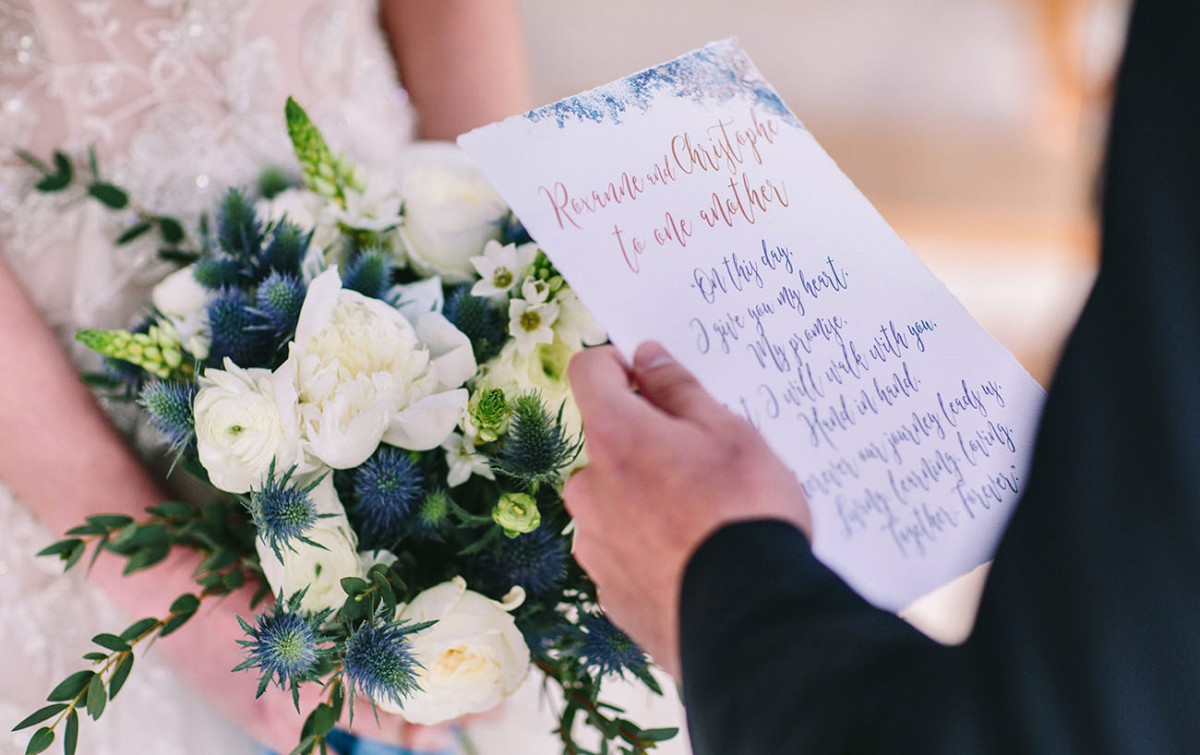 Roxanne and Christophe
to one another
On this day.
I give you my heart.
My promise.
I will walk with you.
Hand in hand.
our journey leads us.
Living, learning, loving.
Together. Forever.